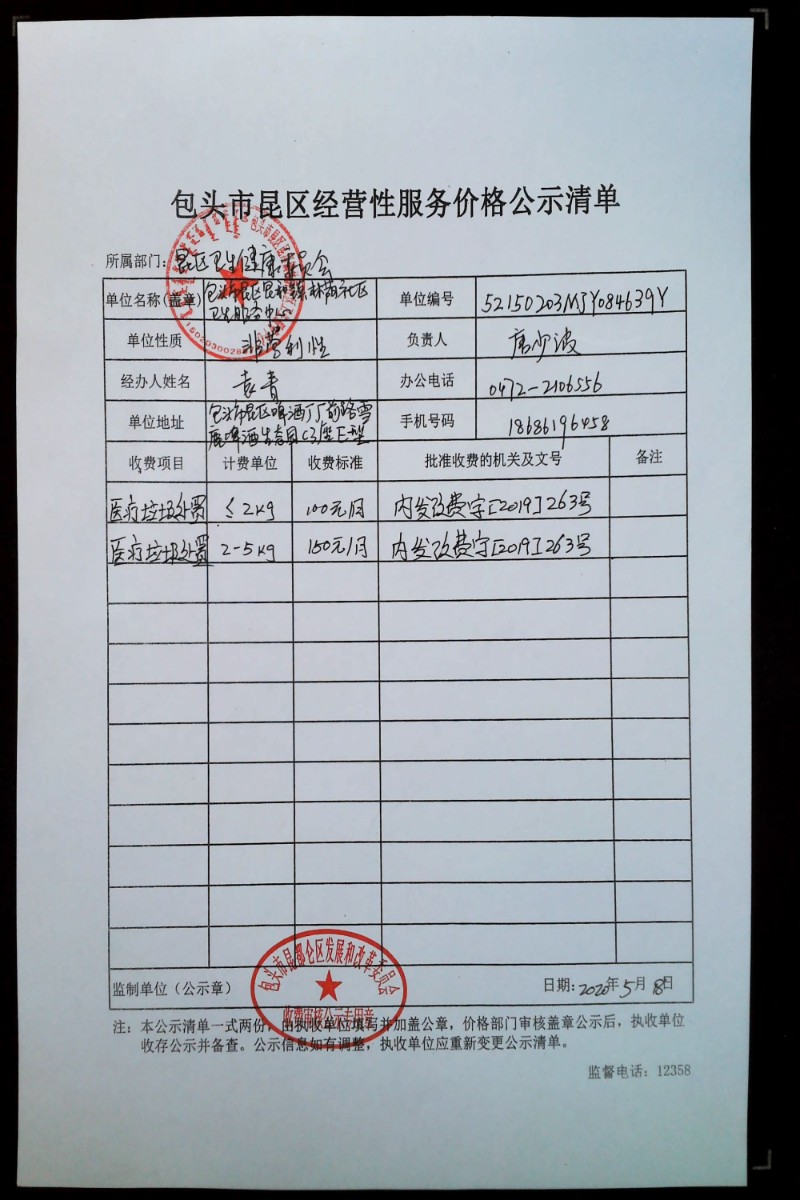 包头市昆区经营性服务价格公示清单
所属部门：昆区卫生健康委员会
单位名称(盖章) 包头市昆区昆和颐林荫社区卫生服务中心 单位编号 52150203MJY084639Y
单位性质 非营利性 负责人 唐少波
经办人姓名 袁青 办公电话 0472-2106556
单位地址 包头市昆区啤酒厂前路雪鹿啤酒生态园C3座E型 手机号码 18686196458
收费项目 计费单位 收费标准 批准收费的机关及文号 备注
医疗垃圾处置 ≤2kg 100元/月 内发改费字[2019]263号
医疗垃圾处置 2-5kg 150元/月 内发改费字[2019]263号
包头市昆都仑区发展和改革委员会
收费审核公示专用章
监制单位（公示章） 日期：2020年5月18日
注：本公示清单一式两份，由执收单位填写并加盖公章，价格部门审核盖章公示后，执收单位
收存公示并备查。公示信息如有调整，执收单位应重新变更公示清单。
监督电话：12358